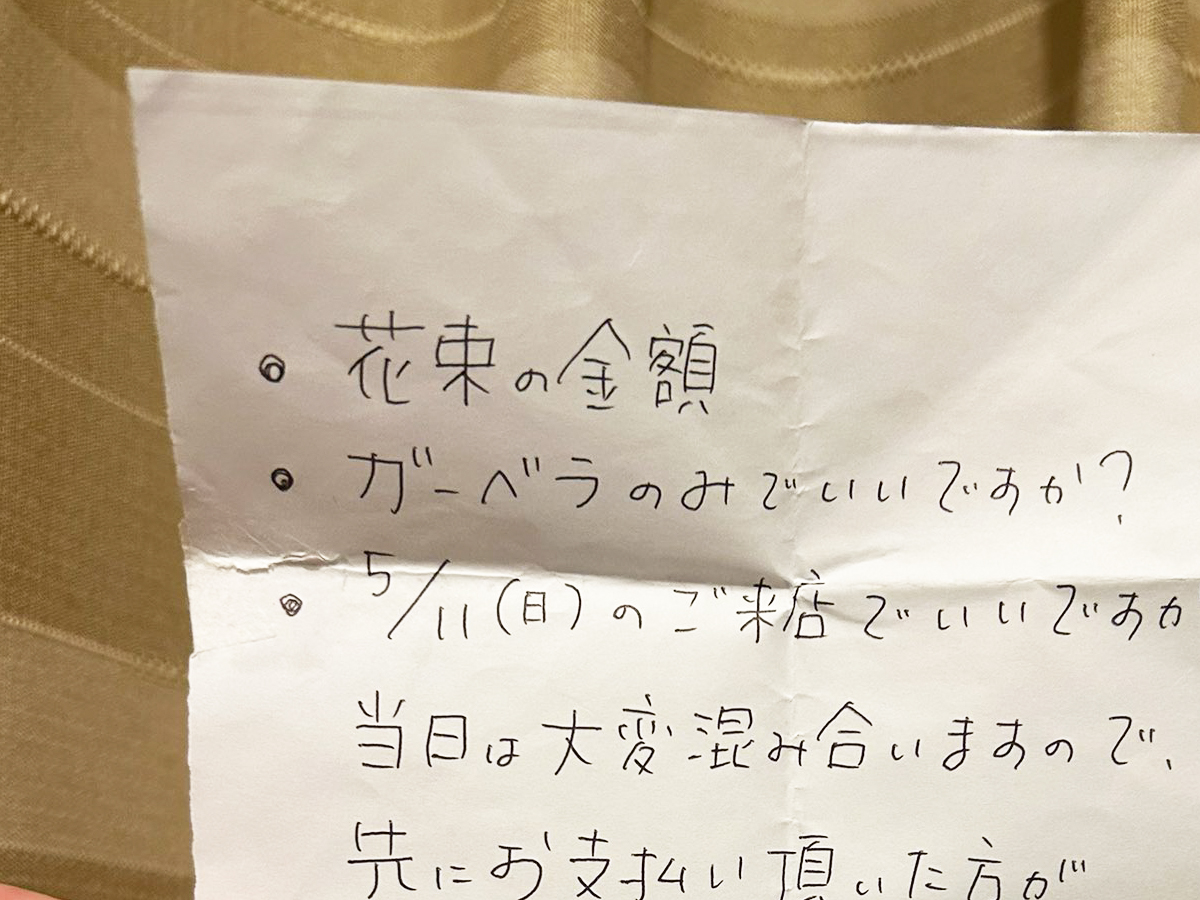 • 花束の金額
• ガーベラのみでいいですか?
• 5/11(日)のご来店でいいですか
当日は大変混み合いますので、
先にお支払い頂いた方が